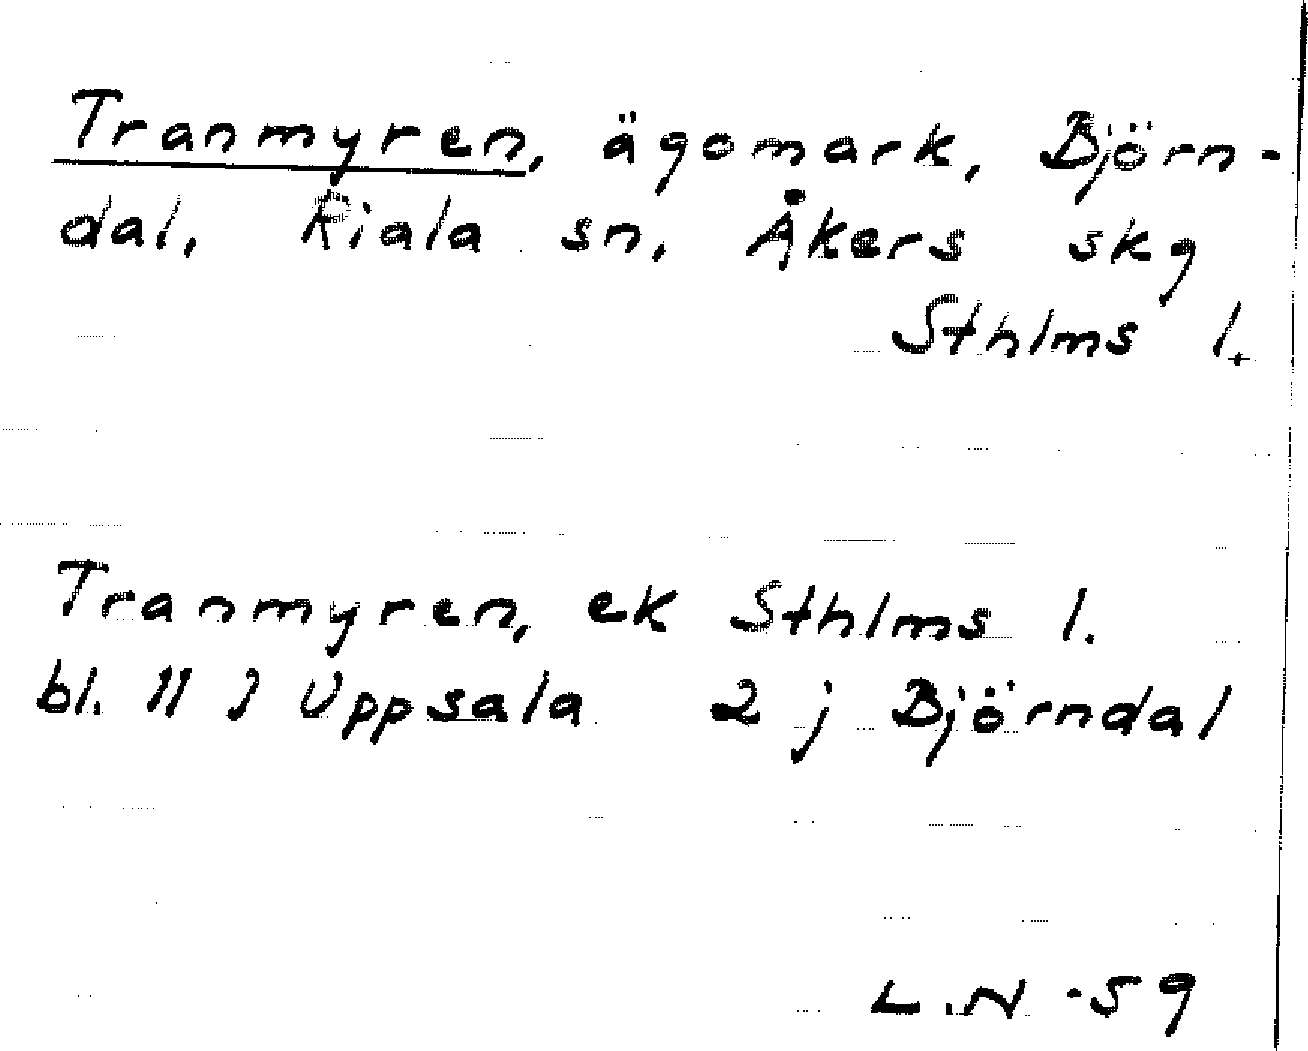 Tranmyren, ägomark, Björn-
dal, Riala sn, Åkers skg
Sthlms l.
Tranmyren, ek Sthlms l.
bl. 11 J Uppsala 2 j Björndal
L.N -59